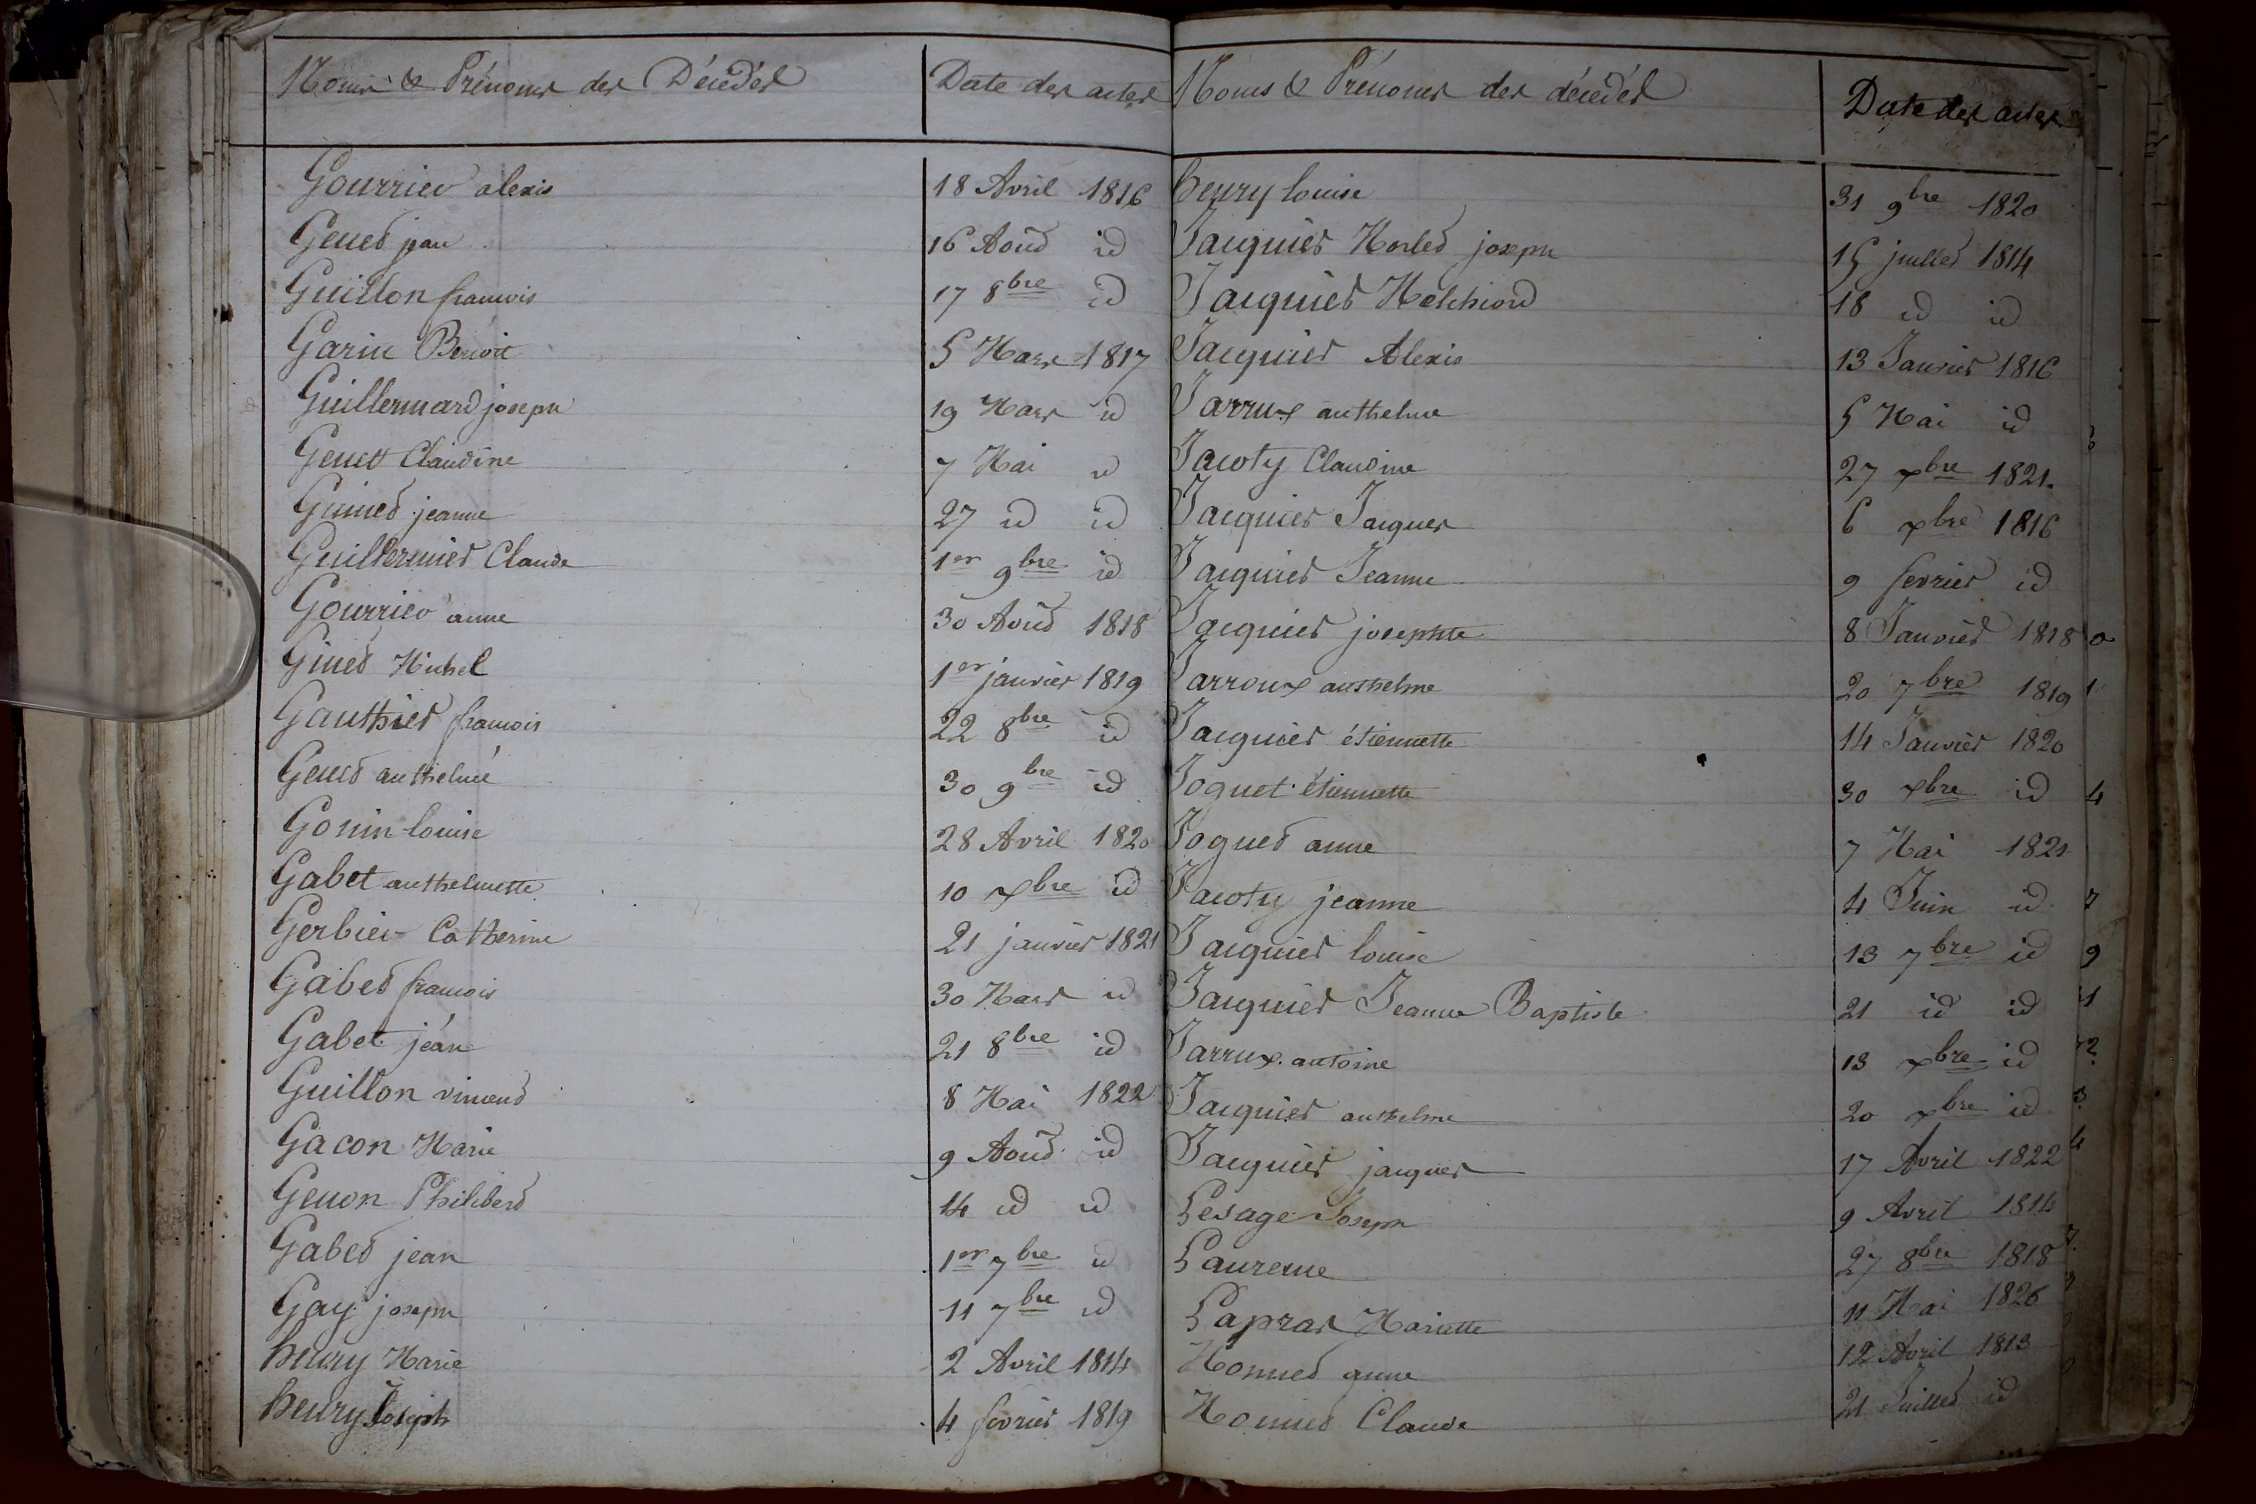 Noms & Prénoms des Décédés
Date des actes
Gourrier alexis 18 Avril 1816
Genet jean 16 Août id
Guillon francois 17 8bre id
Garin Benoit 5 Mars 1817
Guillermard joseph 19 Mars id
Genett Claudine 7 Mai id
Guinet jeanne 27 id id
Guillermier Claude 1er 9bre id
Gourrier anne 30 Août 1818
Ginet Michel 1er janvier 1819
Gauthier francois 22 8bre id
Genet anthelme 30 9bre id
Gonin louise 28 Avril 1820
Gabet anthelmette 10 xbre id
Gerbier Catherine 21 janvier 1821
Gabet francois 30 Mars id
Gabet jean 21 8bre id
Guillon vincent 8 Mai 1822
Gacon Marie 9 Août id
Genon Philibert 14 id id
Gabet jean 1er 7bre id
Gay joseph 11 7bre id
henry Marie 2 Avril 1814
henry Joseph 4 fevrier 1819
Noms & Prénoms des décédés
Date des actes
henry louise 31 9bre 1820
Jacquier Morlet joseph 15 juillet 1814
Jacquier Melchiord 18 id id
Jacquier Alexis 13 Janvier 1816
Jarrux anthelme 5 Mai id
Jacoty Claudine 27 xbre 1821
Jacquier Jacques 6 xbre 1816
Jacquier Jeanne 9 fevrier id
Jacquier josephte 8 Janvier 1818
Jarroux anthelme 20 7bre 1819
Jacquier étiennette 14 Janvier 1820
Joguet étiennette 30 xbre id
Joguet anne 7 Mai 1821
Jacoty jeanne 4 Juin id
Jacquier louise 13 7bre id
Jacquier Jeanne Baptiste 21 id id
Jarrux antoine 13 xbre id
Jacquier anthelme 20 xbre id
Jacquier jacques 17 Avril 1822
Lesage Joseph 9 Avril 1814
Laurence 27 8bre 1818
Lapras Mariette 11 Mai 1826
Monnet anne 12 Avril 1813
Monnet Claude 21 Juillet id